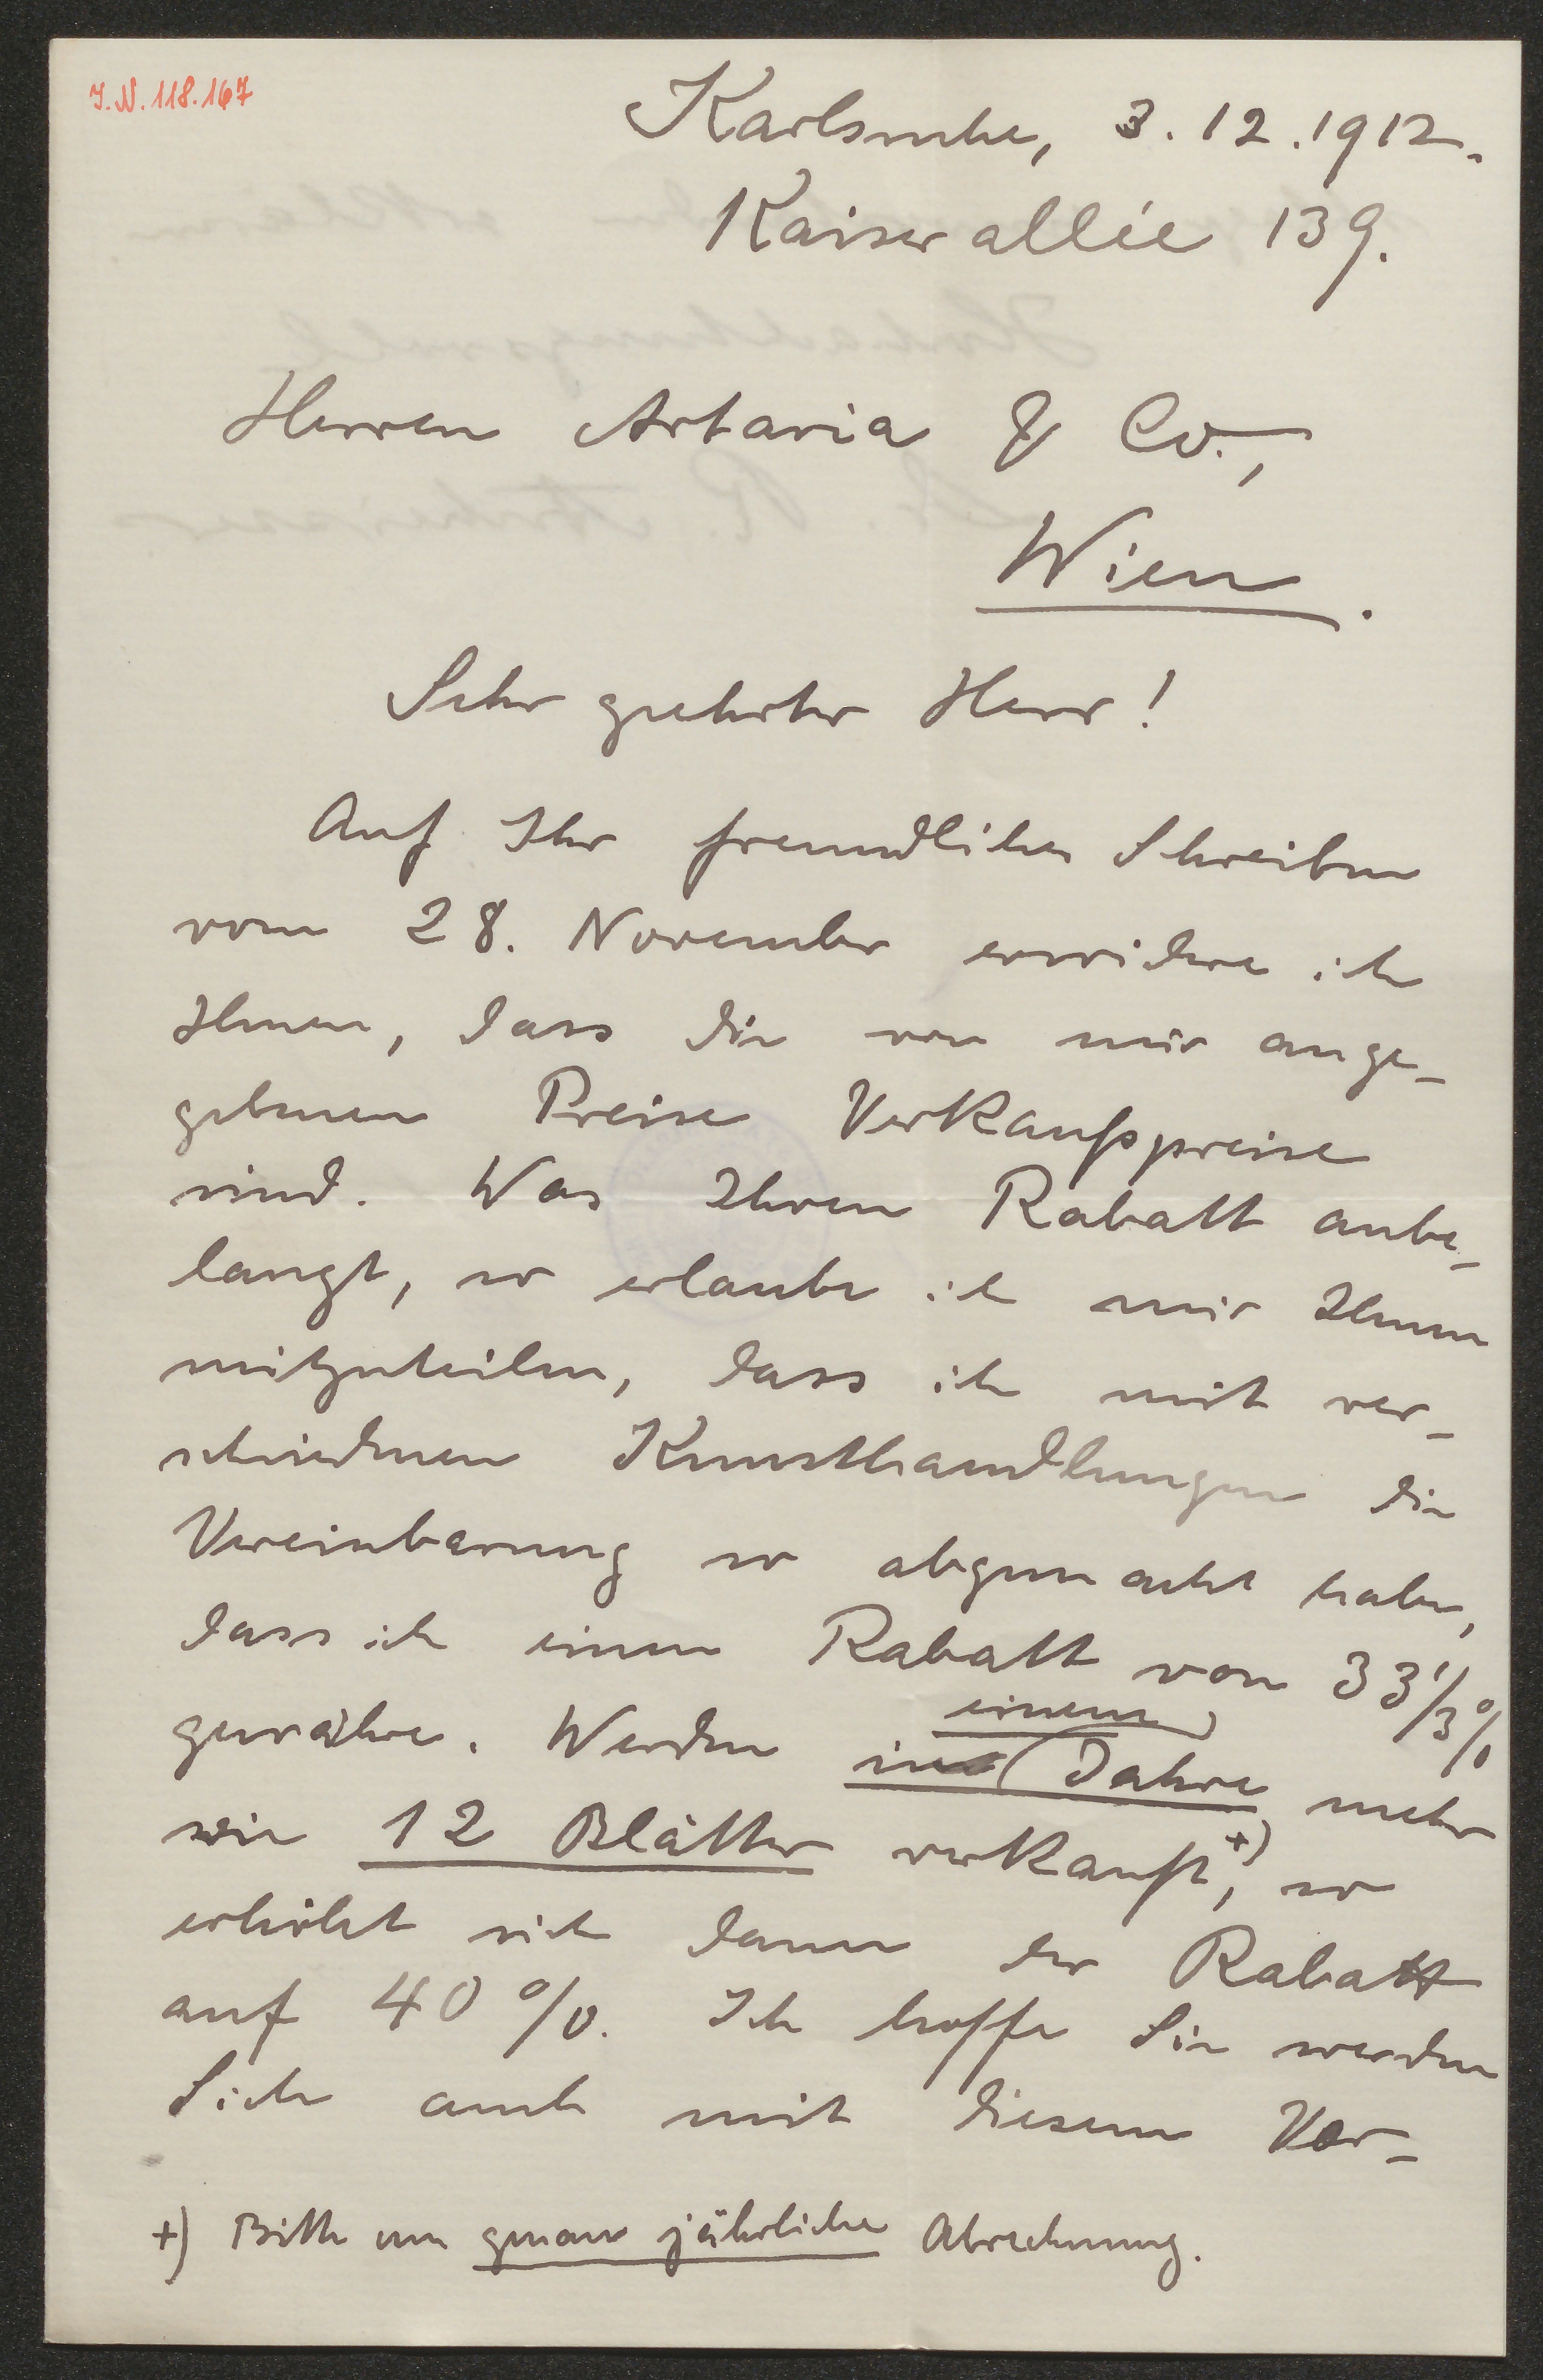 J.N. 118.167
Karlsruhe, 3. 12. 1912.
Kaiserallée 139.
Herren Artaria & Co.,
Wien.
Sehr geehrter Herr!
Auf Ihr freundliches Schreiben
vom 28. November erwidere ich
Ihnen, dass die von mir ange-
gebenen Preise Verkaufspreise
sind. Was Ihren Rabatt anbe-
langt, so erlaube ich mir Ihnen
mitzuteilen, dass ich mit ver-
schiedenen Kunsthandlungen die
Vereinbarung so abgemacht habe,
dass ich einen Rabatt von 33 1/3 %
gewähre. Werden in einem Jahre mehr
wie 12 Blätter verkauft, +) so
erhöht sich dann der Rabatt
auf 40 %. Ich hoffe Sie werden
Sich auch mit diesem Vor-
+) Bitte um genaue jährliche Abrechnung.